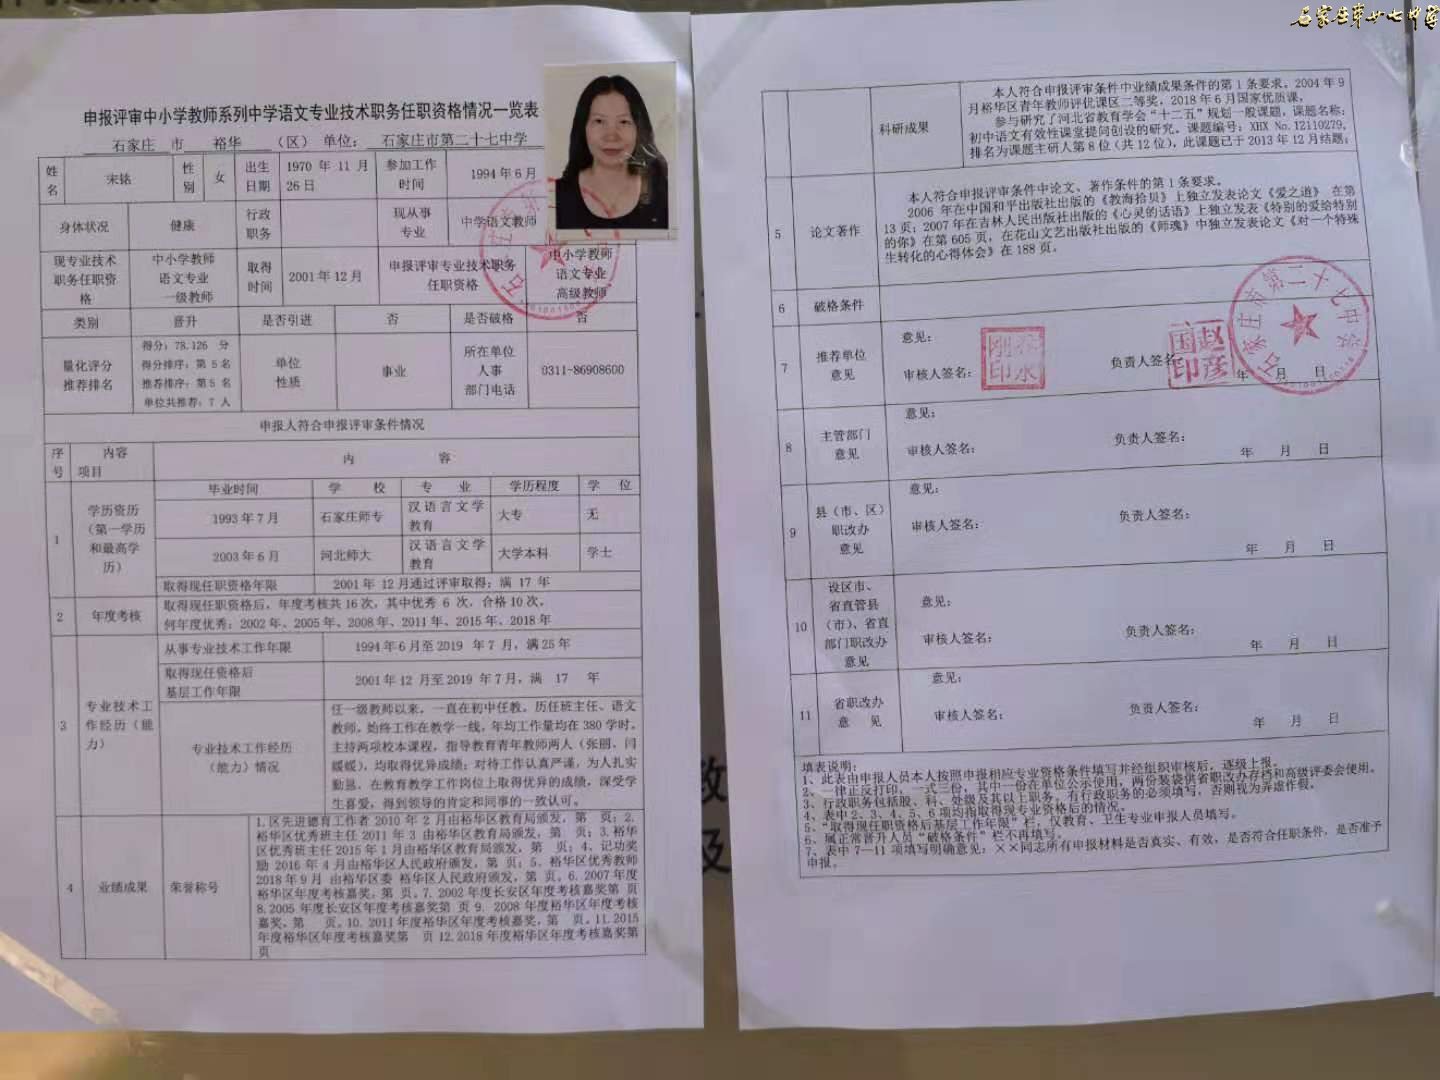 石家庄第廿七中学
申报评审中小学教师系列中学语文专业技术职务任职资格情况一览表
石家庄 市 裕华 (区) 单位: 石家庄市第二十七中学
姓名 宋铭 性别 女 出生日期 1970 年 11 月 26 日 参加工作时间 1994 年 6 月
身体状况 健康 行政职务 现从事专业 中学语文教师
现专业技术职务任职资格 中小学教师语文专业一级教师 取得时间 2001 年 12 月 申报评审专业技术职务任职资格 中小学教师语文专业高级教师
类别 晋升 是否引进 否 是否破格 否
量化评分推荐排名
得分: 78.126 分
得分排序: 第 5 名
推荐排序: 第 5 名
单位共推荐: 7 人
单位性质 事业 所在单位人事部门电话 0311-86908600
申报人符合申报评审条件情况
序号 内容 项目 内 容
1 学历资历(第一学历和最高学历)
毕业时间 学 校 专 业 学历程度 学 位
1993 年 7 月 石家庄师专 汉语言文学教育 大专 无
2003 年 6 月 河北师大 汉语言文学教育 大学本科 学士
取得现任职资格年限 2001 年 12 月通过评审取得; 满 17 年
2 年度考核
取得现任职资格后, 年度考核共 16 次, 其中优秀 6 次, 合格 10 次,
何年度优秀: 2002 年、2005 年、2008 年、2011 年、2015 年、2018 年
3 专业技术工作经历(能力)
从事专业技术工作年限 1994 年 6 月至 2019 年 7 月, 满 25 年
取得现任资格后基层工作年限 2001 年 12 月至 2019 年 7 月, 满 17 年
专业技术工作经历(能力)情况
任一级教师以来, 一直在初中任教, 历任班主任、语文
教师, 始终工作在教学一线, 年均工作量均在 380 学时。
主持两项校本课程, 指导教育青年教师两人(张丽、闫
媛媛), 均取得优异成绩; 对待工作认真严谨, 为人扎实
勤恳, 在教育教学工作岗位上取得优异的成绩, 深受学
生喜爱, 得到领导的肯定和同事的一致认可。
4 业绩成果 荣誉称号
1.区先进德育工作者 2010 年 2 月由裕华区教育局颁发, 第 页; 2.
裕华区优秀班主任 2011 年 3 由裕华区教育局颁发, 第 页; 3.裕华
区优秀班主任 2015 年 1 月由裕华区教育局颁发, 第 页; 4、记功奖
励 2016 年 4 月由裕华区人民政府颁发, 第 页; 5、裕华区优秀教师
2018 年 9 月 由裕华区委 裕华区人民政府颁发, 第 页。6. 2007 年度
裕华区年度考核嘉奖, 第 页。7. 2002 年度长安区年度考核嘉奖第 页
8.2005 年度长安区年度考核嘉奖第 页 9. 2008 年度裕华区年度考核
嘉奖, 第 页。10. 2011 年度裕华区年度考核嘉奖, 第 页。11.2015
年度裕华区年度考核嘉奖第 页 12.2018 年度裕华区年度考核嘉奖第
页
科研成果
本人符合申报评审条件中业绩成果条件的第 1 条要求。2004 年 9
月裕华区青年教师评优课区二等奖, 2018 年 6 月国家优质课。
参与研究了河北省教育学会“十二五”规划一般课题, 课题名称:
初中语文有效性课堂提问创设的研究。课题编号: XHX No.12110279,
排名为课题主研人第 8 位(共 12 位), 此课题已于 2013 年 12 月结题;
5 论文著作
本人符合申报评审条件中论文、著作条件的第 1 条要求。
2006 年在中国和平出版社出版的《教海拾贝》上独立发表论文《爱之道》在第
13 页; 2007 年在吉林人民出版社出版的《心灵的话语》上独立发表《特别的爱给特别
的你》在第 605 页, 在花山文艺出版社出版的《师魂》中独立发表论文《对一个特殊
生转化的心得体会》在 188 页。
6 破格条件
7 推荐单位意见
意见:
审核人签名: 负责人签名:
年 月 日
赵彦国印
石家庄市第二十七中学
8 主管部门意见
意见:
审核人签名: 负责人签名:
年 月 日
9 县(市、区)职改办意见
意见:
审核人签名: 负责人签名:
年 月 日
10 设区市、省直管县(市)、省直部门职改办意见
意见:
审核人签名: 负责人签名:
年 月 日
11 省职改办意 见
意见:
审核人签名: 负责人签名:
年 月 日
填表说明:
1、此表由申报人员本人按照申报相应专业资格条件填写并经组织审核后, 逐级上报。
2、一律正反打印, 一式三份, 其中一份在单位公示使用, 两份装袋供省职改办存档和高级评委会使用。
3、行政职务包括股、科、处级及其以上职务, 有行政职务的必须填写, 否则视为弄虚作假。
4、表中 2、3、4、5、6 项均指取得现专业资格后的情况。
5、“取得现任职资格后基层工作年限”栏, 仅教育、卫生专业申报人员填写。
6、属正常晋升人员“破格条件”栏不再填写。
7、表中 7—11 项填写明确意见: ××同志所有申报材料是否真实、有效, 是否符合任职条件, 是否准予
申报。